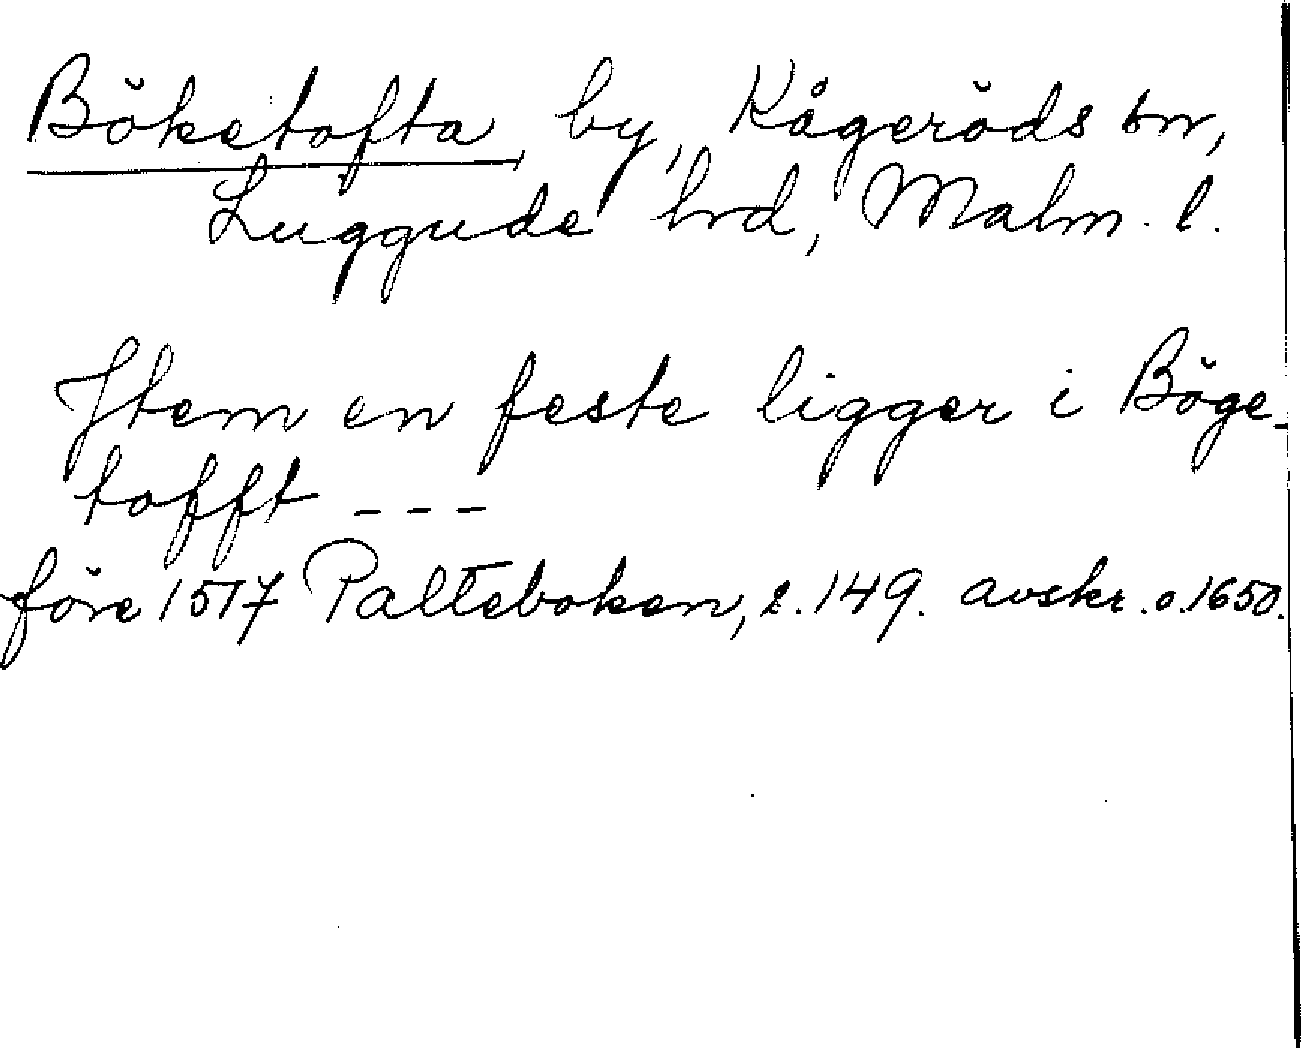 Böketofta, by, Kågeröds sn,
Luggude hrd, Malm. l.
Jtem en feste ligger i Böge-
tofft - - -
före 1517 Palteboken, s. 149. avskr. o. 1650.